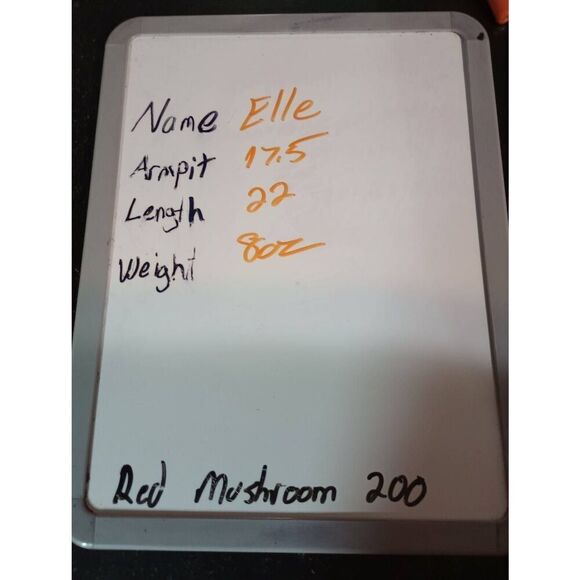 Name Elle
Armpit 17.5
Length 22
Weight 8oz
Red Mushroom 200